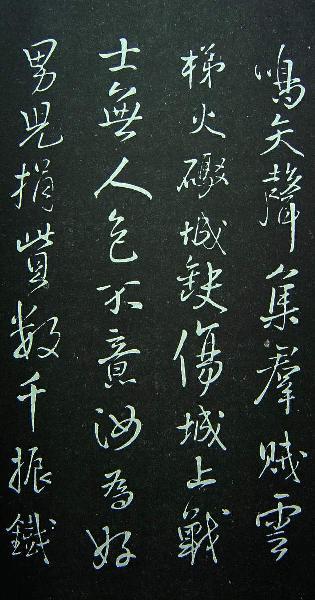 鳴矢聲集群賊雲
梯火礮城缺傷城上戰
士無人色不意汝為好
男兒捐貲數千振鐵